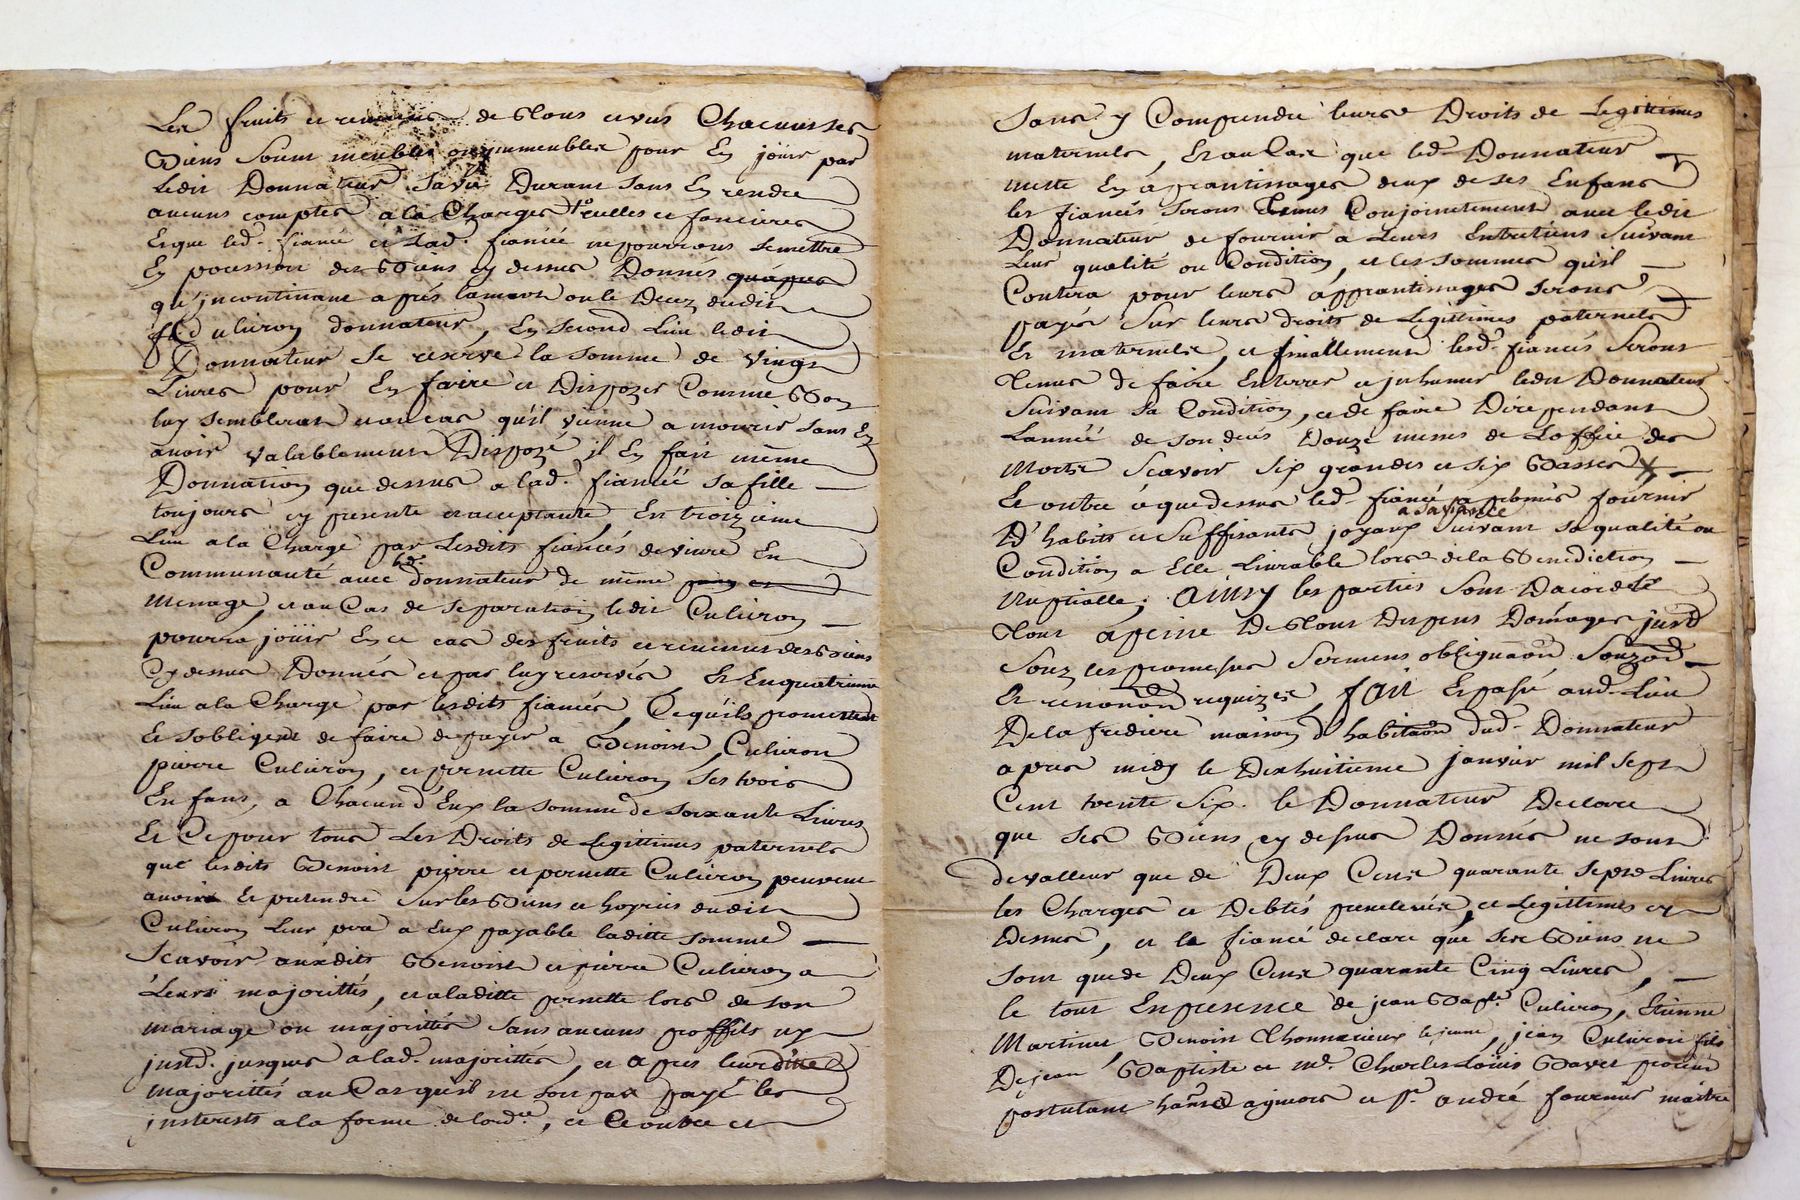 Les fruits et revenus de Tous et uns Chacuns ses
Biens soient meubles ou immeubles pour En joüir par
Ledit Donnateur sa vie Durant sans En rendre
aucuns comptes a la Charges reelles et foncieres
Et que led. fiancé et Lad. fiancée ne pourrons se mettre
En possession des Biens cy dessus Donnés
qu'incontinant aprés la mort ou le Decez dudit
Culieron donnateur, En second Lieu ledit
Donnateur se reserve la somme de vingt
Livres pour En faire et Disposer Comme Bon
luy semblerat et au cas qu'il vienne a mourir sans En
avoir valablement Disposé il En fait même
Donnation que dessus a lad. fiancée sa fille
toujours cy presente et acceptante, En troizieme
Lieu a la Charge par Lesdits fiancés de vivre En
Communauté avec led. donnateur de même
menage, et au Cas de separation ledit Culieron
pourra joüir En ce cas des fruits et revenus des Biens
Cy dessus Donnés et par luy reservés Et En quatrieme
Lieu a la Charge par lesdits fiancés, Ce qu'ils promettent
Et s'obligent de faire de payer a Benoist Culieron
pierre Culieron, et pernette Culieron ses trois
Enfans, a Chacun d'Eux la somme de soixante Livres
Et Ce pour tous Les Droits de Legittimes paternels
que lesdits Benoist pierre et pernette Culieron peuvent
avoir Et pretendre sur les Biens et hoyries dudit
Culieron Leur pere a Eux payable laditte somme
Scavoir auxdits Benoist et pierre Culieron a
Leurs majorittés, et a laditte pernette lors de son
mariage ou majorittés sans aucuns proffits
jusques a lad. majorittés, et apres leurs dittes
majorittés au Cas qu'il ne soit pas payé les
interests a la forme de lord.ce, et Ce outre et
sans y Comprendre leurs Droits de Legitimes
maternels, Et au Cas que led. Donnateur
mette En aprantissages deux de ses Enfans
les fiancés serons Tenus Conjointement avec ledit
Donnateur de fournir a Leurs Entretiens Suivant
Leur qualité ou Condition, et les sommes qu'il
Contera pour leurs apprantissages serons
payés Sur leurs droits de Legittimes paternels
Et maternels, et finallement lesd. fiancés Serons
Tenus de faire Enterrer et inhumer ledit Donnateur
Suivant sa Condition, et de faire Dire pendant
Lannée de son decés Douze messes de Loffice des
Morts Scavoir six grandes et six Basses
Et outre a que dessus led. fiancé a promis fournir
a sa fiancée
D'habits et suffisants joyaux suivant sa qualité ou
Condition a Elle Livrable lors de la Benediction
Nuptialle; ainsy les parties sont Dacord
Tout a peine De Tous Depens Domages
Souz les promesses Sermens
Et requizes, fait Et passé aud. Lieu
De la frediere maison d'habitaon dud. Donnateur
apres midy le Dixhuitieme janvier mil sept
Cent trente six. le Donnateur Declare
que ses Biens cy dessus Donnés ne sont
de valleur que de Deux Cents quarante sept Livres
les Charges et Debtes prelevés, et Legittimes cy
Dessus, et le fiancé declare que ses Biens ne
sont que de Deux Cents quarante Cinq Livres,
le tout En presence de jean Bapte. Culieron, Etienne
Martinet Benoist Thonnerieux le jeune, jean Culieron fils
De jean Baptiste et me. Charles Loüis Bavet
postulant et sr. andré fournier maitre